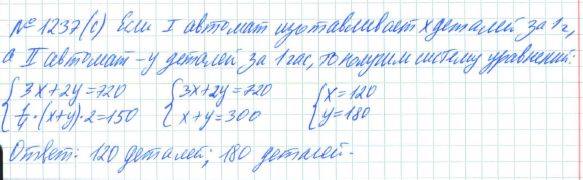 № 1237(с) Если I автомат изготавливает x деталей за 1ч,
а II автомат – y деталей за 1 час, то получим систему уравнений:
{3x+2y=720 {3x+2y=720 {x=120
{1/4·(x+y)·2=150 {x+y=300 {y=180
Ответ: 120 деталей; 180 деталей.